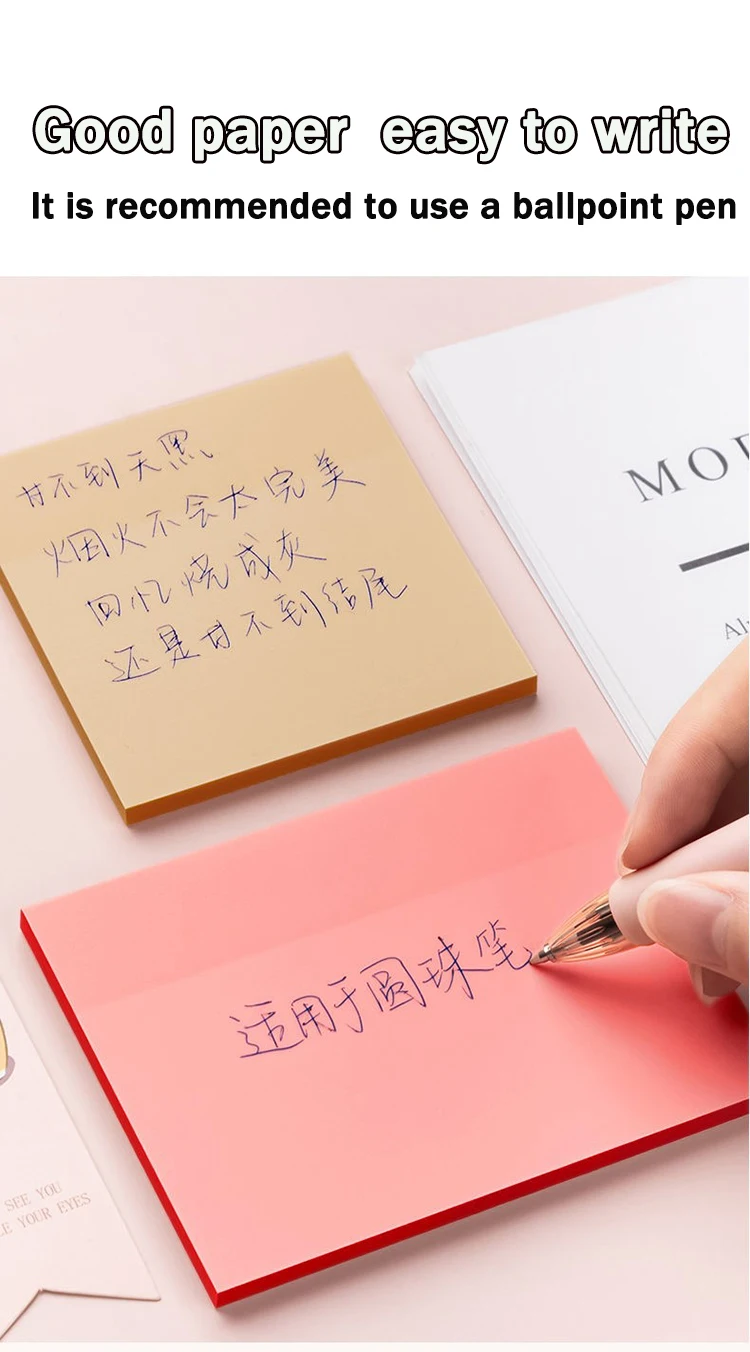 Good paper easy to write
It is recommended to use a ballpoint pen
甘不到天黑
烟火不会太完美
回忆烧成灰
还是甘不到结尾
MOR
Al
适用于圆珠笔
SEE YOU
E YOUR EYES